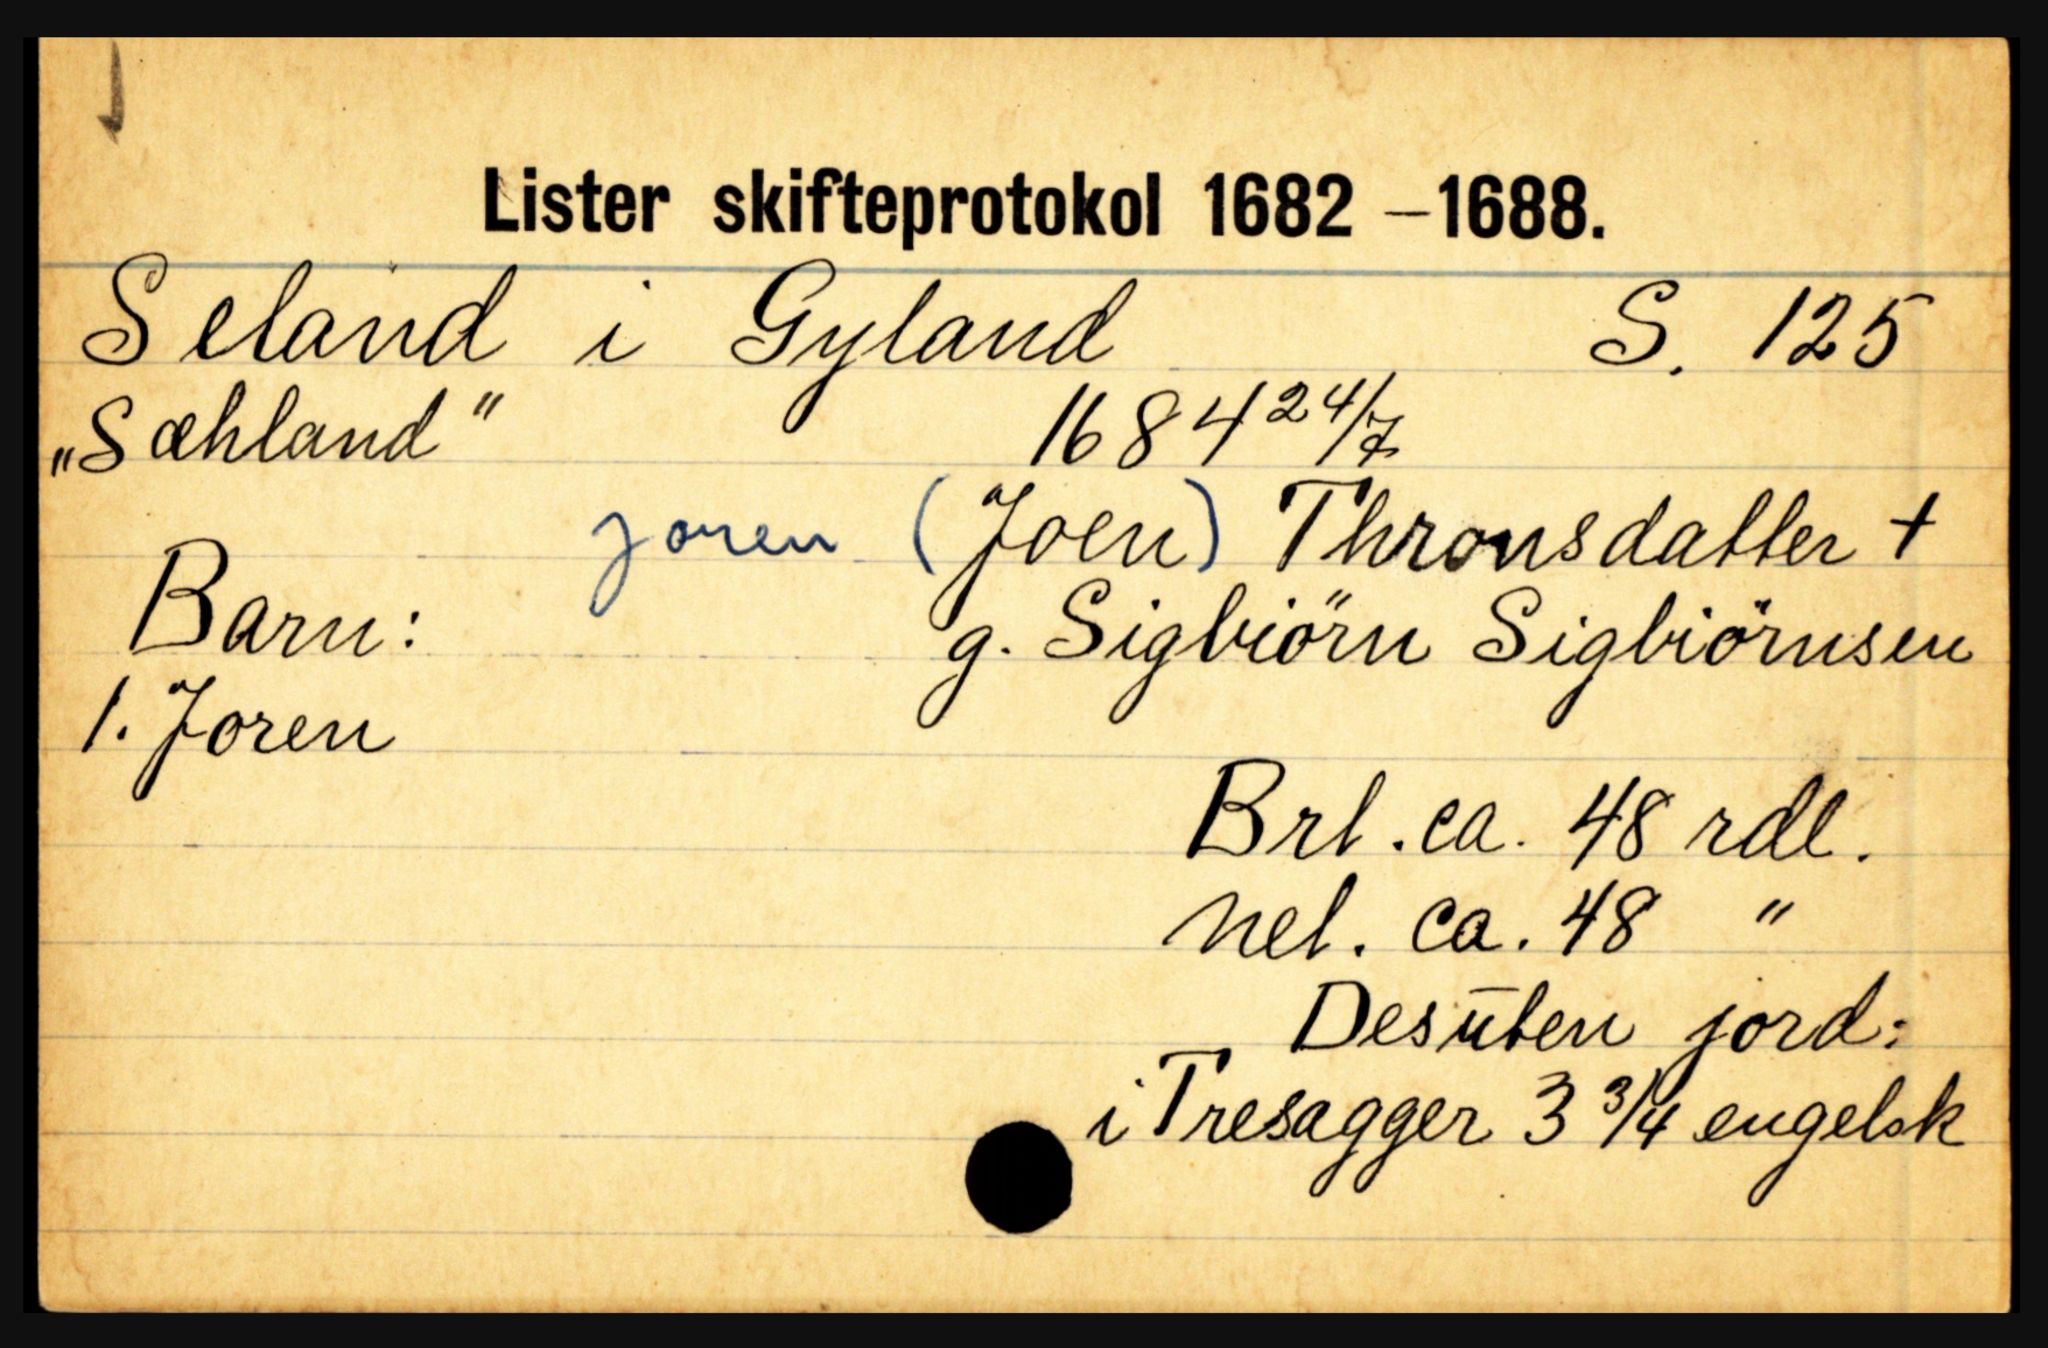 Lister skifteprotokol 1682 – 1688.
Seland i Gyland S. 125
„Sæhland" 1684 24/7
Joren (Joen) Thronsdatter +
Barn: g. Sigbiörn Sigbiörnsen
1. Joren
Brl. ca. 48 rdl.
Nel. ca. 48 "
Desūten jord:
i Tresagger 3 3/4 engelsk